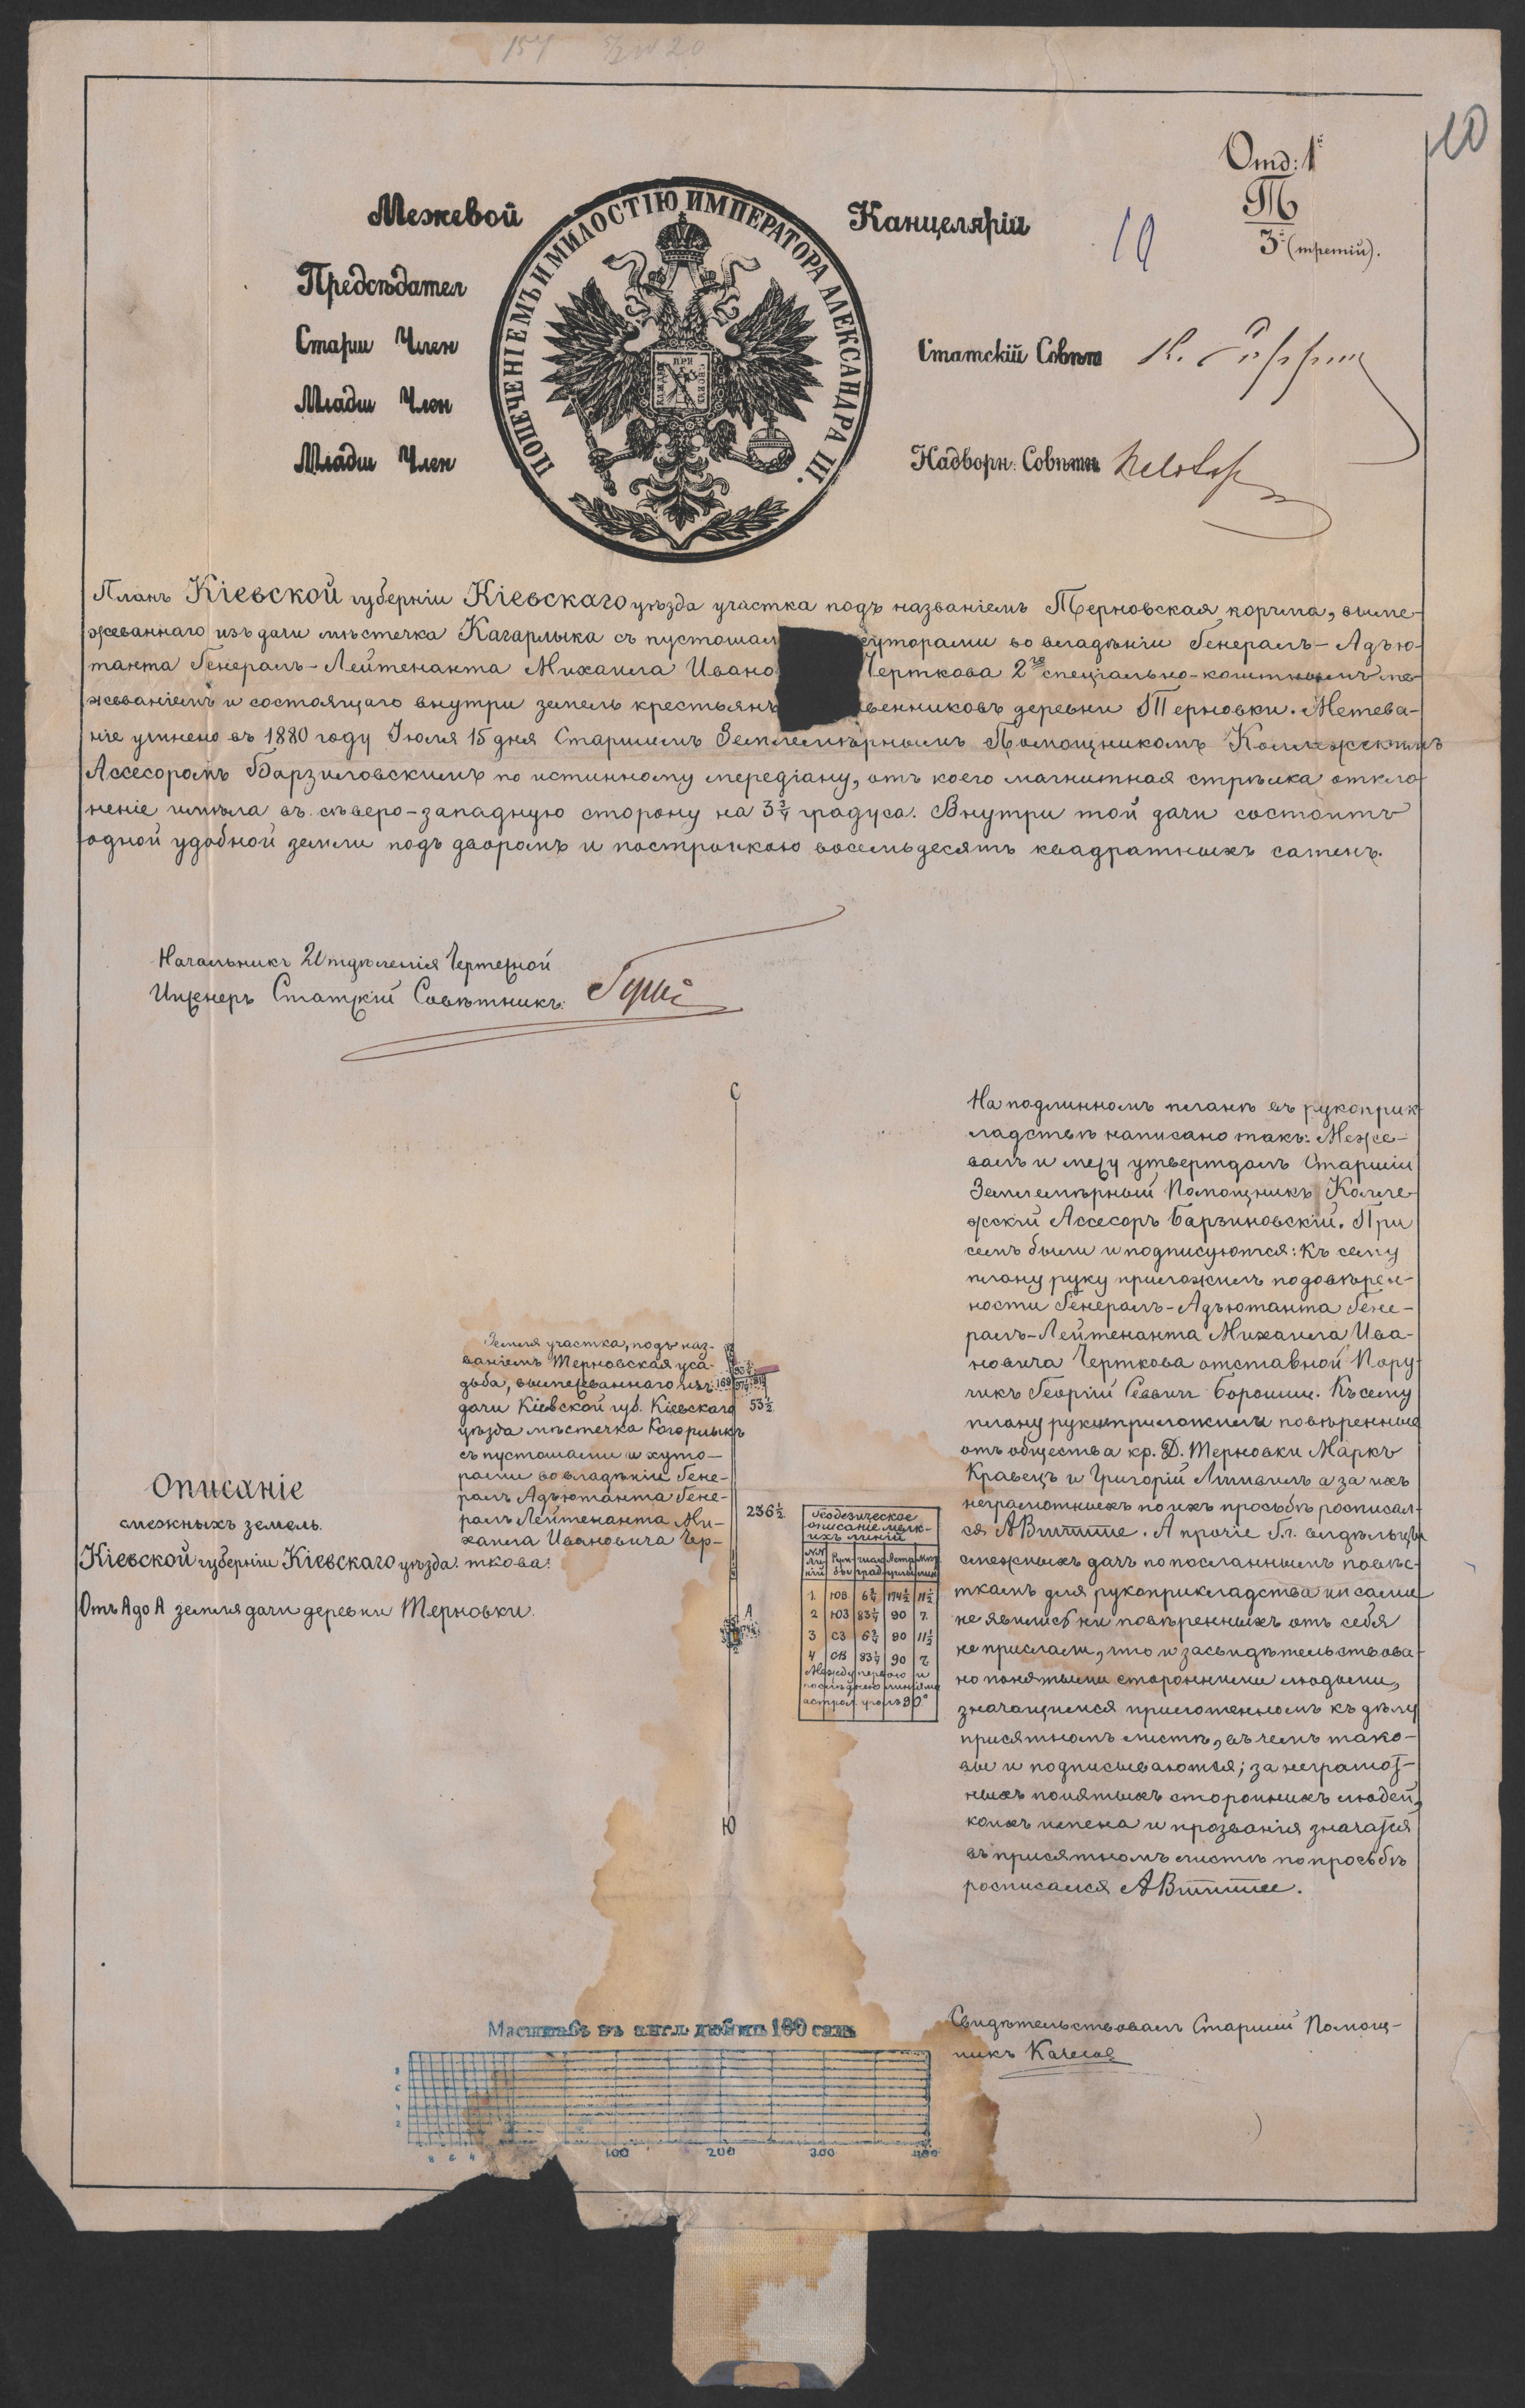 10
Отд: 1
Т
3 (третій).
19
Межевой Канцеляріи
ПОПЕЧЕНІЕМЪ И МИЛОСТІЮ ИМПЕРАТОРА АЛЕКСАНДРА III.
Предсѣдател
Старш Член
Статскій Совѣтн
Младш Член
Младш Член
Надворн: Совѣтн
Планъ Кіевской губерніи Кіевскаго уѣзда участка подъ названіемъ Терновская корчма, выме-
жеваннаго изъ дачи мѣстечка Кагарлыка съ пустошам уторами во владѣніи Генералъ-Адъю-
танта Генералъ-Лейтенанта Михаила Ивано Черткова 2го спеціально-коштнымъ ме-
жеваніемъ и состоящаго внутри земель крестьянъ венниковъ деревни Терновки. Межева-
ніе учинено въ 1880 году Іюля 15 дня Старшимъ Землемѣрнымъ Помощникомъ Коллежскимъ
Ассесоромъ Барзиловскимъ по истинному меридіану, отъ коего магнитная стрѣлка откло-
неніе имѣла въ сѣверо-западную сторону на 3¾ градуса. Внутри той дачи состоитъ
одной удобной земли подъ дворомъ и постройкою восемьдесять квадратныхъ саженъ.
Начальникъ 2 Отдѣленія Чертежной
Инженеръ Статскій Совѣтникъ:
С
Земля участка, подъ наз-
ваніемъ Терновская уса-
дьба, вымежеваннаго изъ
дачи Кіевской губ. Кіевскаго
уѣзда мѣстечка Когорлыкъ
съ пустошами и хуто-
рами во владѣніи Гене-
ралъ Адъютанта Гене-
ралъ Лейтенанта Ми-
хаила Ивановича Чер-
ткова:
169
53½
236½
А
Ю
Описаніе
смежныхъ земель.
Кіевской губерніи Кіевскаго уѣзда:
Отъ А до А земля дачи деревни Терновки.
Геодезическое
описаніе мелк-
ихъ линій
№№ ли ній Рум- бы град углы
1 ЮВ 6¾ 174½ 11½
2 ЮЗ 83¼ 90 7
3 СЗ 6¾ 90 11½
4 СВ 83¼ 90 7
Между первою и
послѣднею линіями
астрол. уголъ 90°
На подлинномъ планѣ въ рукоприк-
ладствѣ написано такъ: Меже-
валъ и межу утверждалъ Старшій
Землемѣрный Помощникъ Колле-
жскій Ассесоръ Барзиновскій. При
семъ были и подписуются: Къ сему
плану руку приложилъ по довѣрен-
ности Генералъ-Адъютанта Гене-
ралъ-Лейтенанта Михаила Ива-
новича Черткова отставной Пору-
чикъ Георгій Саввич Борошии. Къ сему
плану руки приложили повѣренные
отъ общества кр. Д. Терновки Маркъ
Кравецъ и Григорій а за ихъ
неграмотныхъ по ихъ просьбѣ росписал-
ся А Витте. А прочіе Г.г. владѣльцы
смежныхъ дачъ по посланнымъ повѣс-
ткамъ для рукоприкладства ни сами
не явились ни повѣренныхъ отъ себя
не прислали, что и засвидѣтельствова-
но понятыми сторонними людьми,
значащимся приложенномъ къ дѣлу
присяжномъ листѣ, въ чемъ тако-
вые и подписываются; за неграмот-
ныхъ понятыхъ стороннихъ людей,
коихъ имена и прозванія значатся
въ присяжномъ листѣ по просьбѣ
росписался А Витте.
Свидѣтельствовалъ Старшій Помощ-
никъ
Масштабъ въ англ. дюймѣ 100 саж
8
6
4
2
8 6 4 100 200 300 400